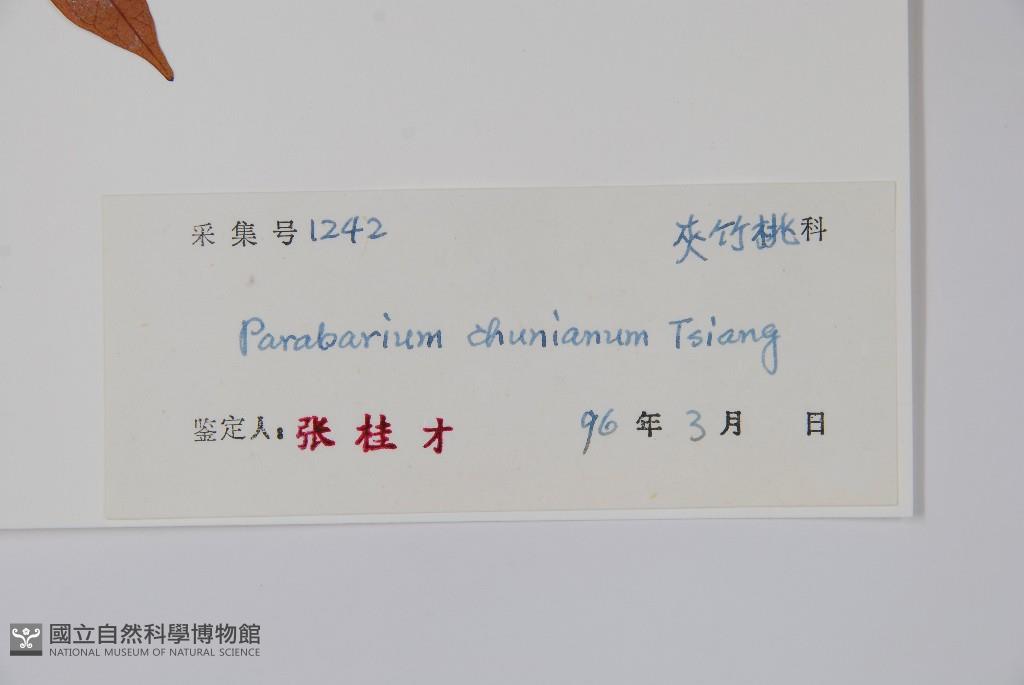 采集号 1242 夾竹桃科
Parabarium chunianum Tsiang
鉴定人: 张桂才 96年3月 日
國立自然科學博物館
NATIONAL MUSEUM OF NATURAL SCIENCE